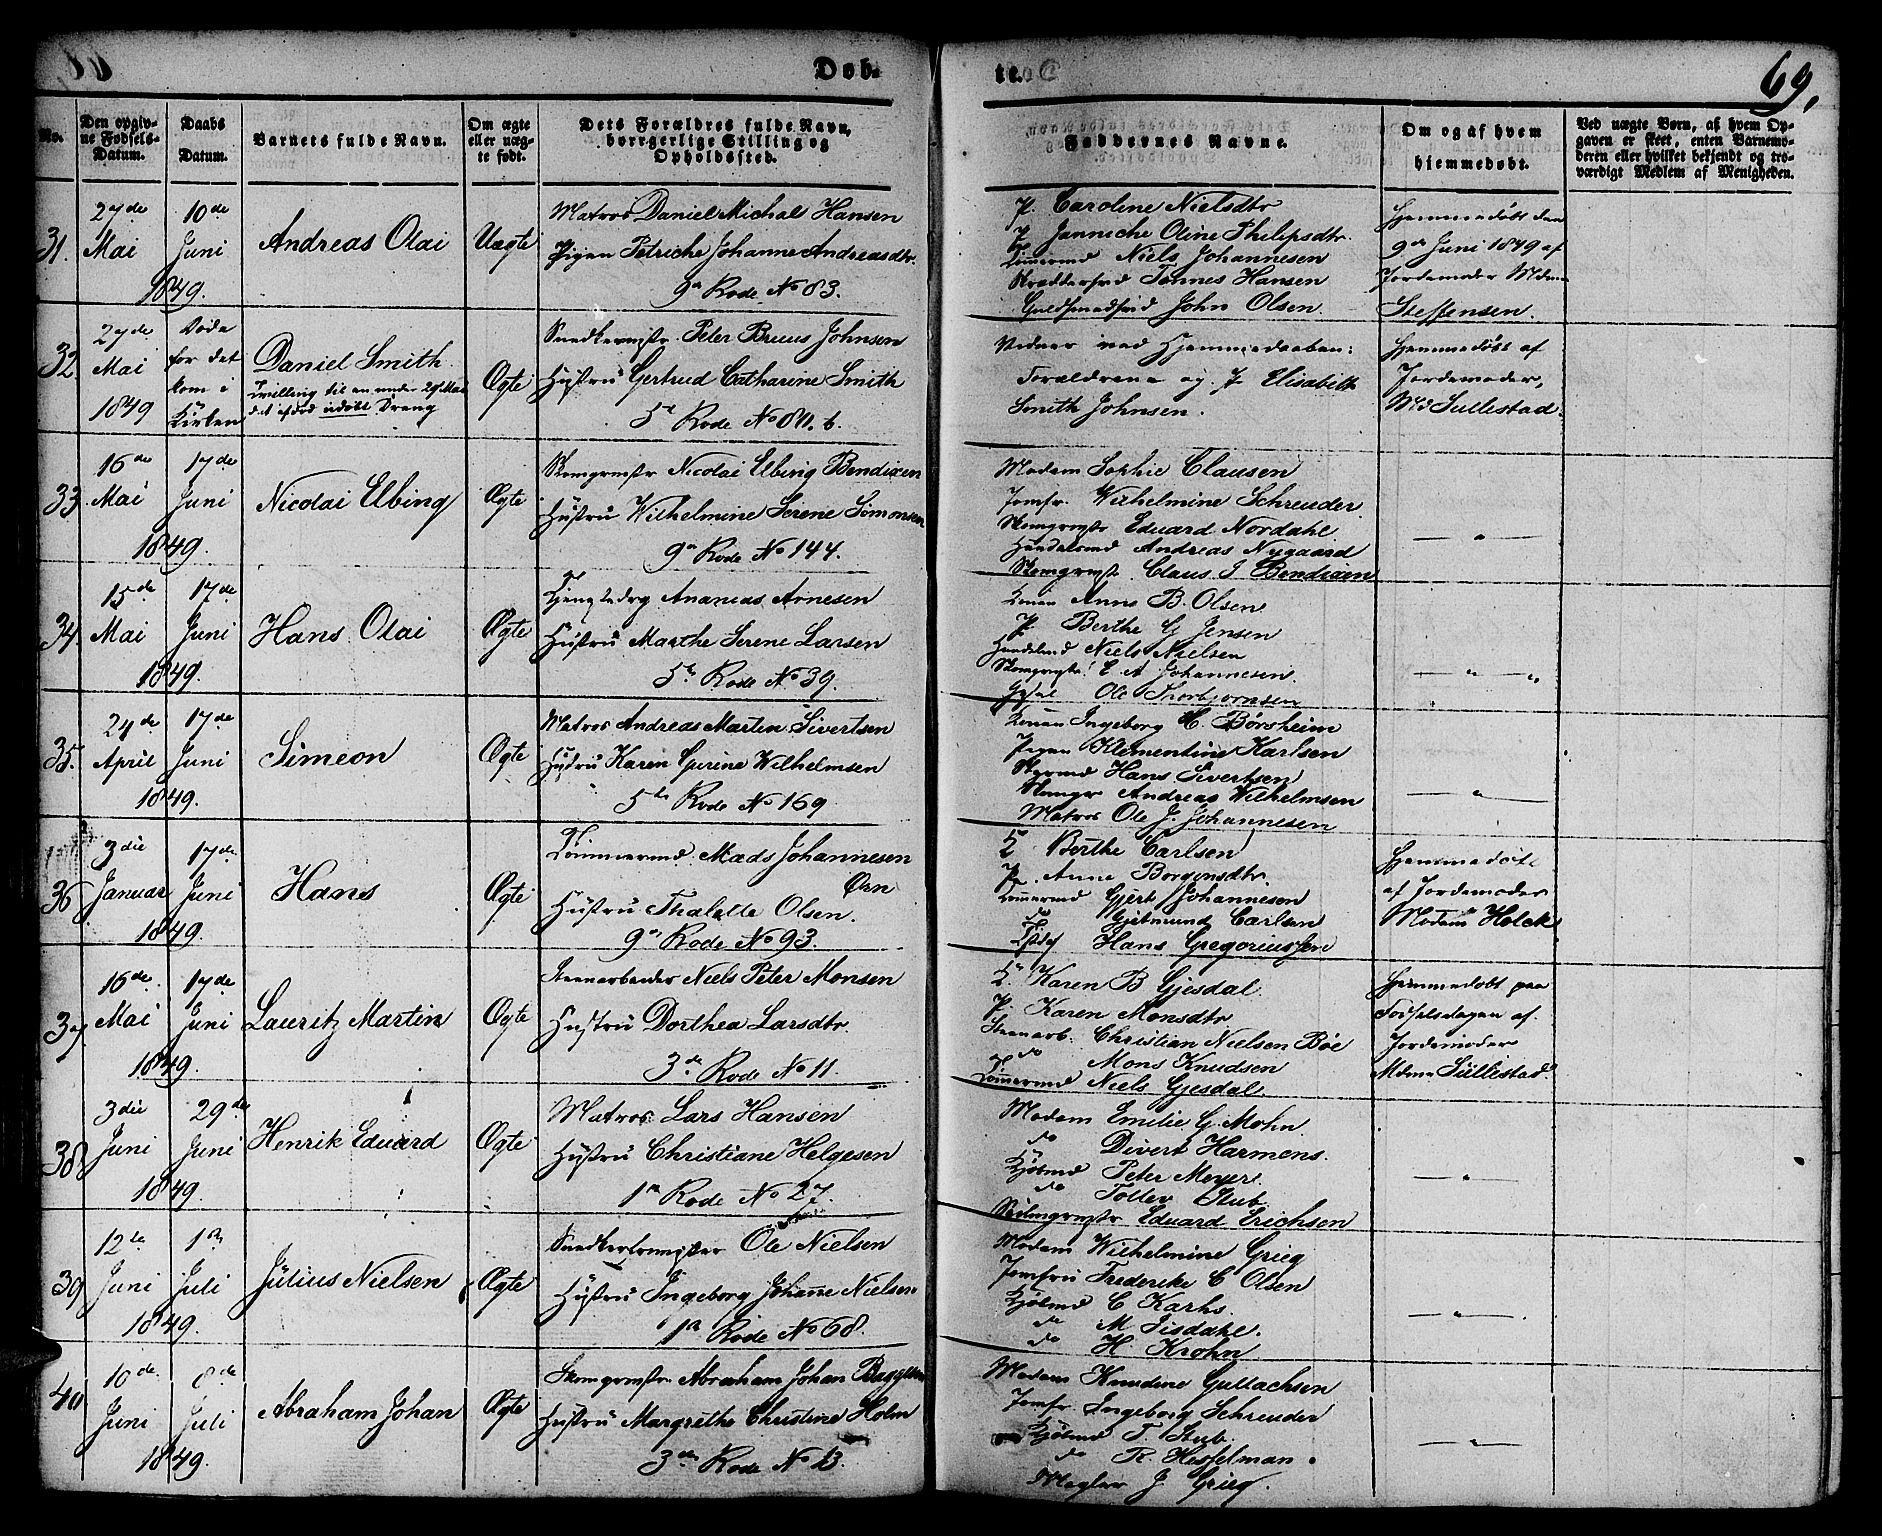 Døb-
te.
69,
No.
Den opgiv-
ne Fødsels-
Datum.
Daabs
Datum.
Barnets fulde Navn.
Om ægte
eller uæg-
te født.
Dets Forældres fulde Navn,
borgerlige Stilling og
Opholdssted.
Faddernes Navne.
Om og af hvem
hjemmedøbt.
Ved uægte Børn, af hvem Op-
gaven er skeet, enten Barnemo-
deren eller hvilket bekjendt og tro-
værdigt Medlem af Menigheden.
31.
27de
Mai
10de
Juni
1849.
Andreas Olai
Uægte
Matros Daniel Michal Hansen
Pigen Petriche Johanne Andreasdtr.
9de Rode No 83.
P. Caroline Nielsdtr
P. Janniche Oline Philipsdtr.
Tømermd Niels Johannesen
Skrædersvd Tønnes Hansen
Guldsmedsvd John Olsen
Hjemmedøbt den
9de Juni 1849 af
Jordemoder Mdme
Steffensen.
32.
27de
Mai
1849
Døde
før det
kom i
Kirken
Daniel Smith
Tvilling til en under 29 Mai
det udøbt Dreng
Ægte
Snedkermstr Peter Bruus Johnsen
Hustru Gertrud Catharine Smith
5te Rode No 80. b.
Vidner ved Hjemmedaaben:
Forældrene og P Elisabeth
Smith Johnsen.
Hjemmedøbt af
Jordemoder,
Md Sullestad.
33.
16de
Mai
17de
Juni
1849.
Nicolai Elbing
Ægte
Skomgrmstr Nicolai Elbing Bendixen
Hustru Wilhelmine Serene Simonsen
9de Rode No 144.
Madam Sophie Clausen
Jomfr. Wilhelmine Schreuder
Skomgrmstr Eduard Nordahl
Handelsmd Andreas Nygaard
Skomgrmst. Claus J Bendixen
— " —
34.
15de
Mai
17de
Juni
1849.
Hans Olai
Ægte
Ananias Arnesen
Hustru Marthe Serene Larsen
5te Rode No 39.
Konen Anne B. Olsen
P. Berthe G Jensen
Handelsmd Niels Nielsen
E A Johannesen
Ole Thorbjørnsen
— " — "
35.
24de
April
17de
Juni
1849.
Simeon
Ægte
Matros Andreas Martin Sivertsen
Hustru Karen Gurine Wilhelmsen
5te Rode No 169
Konen Ingeborg H. Børsheim
Pigen Klementine Karlsen
Hans Sivertsen
Skomgr Andreas Wilhelmsen
Matros Ole J. Johannesen
— " —
36
3die
Januar
17de
Juni
1849.
Hans
Ægte
Tømmermd. Mads Johannesen
Ørn
Hustru Thalette Olsen.
9de Rode No 93.
K Berthe Carlsen
P. Anne Borgensdtr.
Tømermd Gjert Johannesen
do Gjetmund Carlsen
Hans Gregoriussen
Hjemmedøbt
af Jordemoder
Madam Holck
37.
16de
Mai
17de
Juni
1849.
Lauritz Martin
Ægte
Steenarbeider Niels Peter Monsen
Hustru Dorthea Larsdtr.
3de Rode No 11.
K. Karen B Gjesdal.
P. Karen Monsdtr
Steenarb. Christian Nielsen Bøe
do Mons Knudsen
Tømermd Niels Gjesdal.
Hjemmedøbt paa
Fødselsdagen af
Jordemoder
Mdme Sullestad.
38
3die
Juni
29de
Juni
1849.
Henrik Eduard
Ægte
Matros Lars Hansen
Hustru Christiane Helgesen
1ste Rode No 27.
Madam Emilie G. Mohn.
do Divert Harmens.
Kjøbmd Peter Meyer.
do Toller Stub.
Seilmgrmstr Eduard Erichsen
— " —
39
12te
Juni
1ste
Juli
1849.
Julius Nielsen
Ægte
Snedkerformester Ole Nielsen
Hustru Ingeborg Johanne Nielsen
1ste Rode No 68.
Madam Wilhelmine Grieg
Jomfru Frederike C Olsen
Kjøbmd C Karhs.
do M Sisdahl.
do H Krohn
— " —
40
10de
Juni
8de
Juli
1849.
Abraham Johan
Ægte
Skomgrmstr Abraham Johan Baggesen
Hustru Margrethe Christine Holm
3de Rode No 13.
Madam Knudine Gullachsen
Jomfr. Ingeborg Schreuder
Kjøbmd T. Stub.
do R. Hesselman.
Mægler J Grieg.
— " —